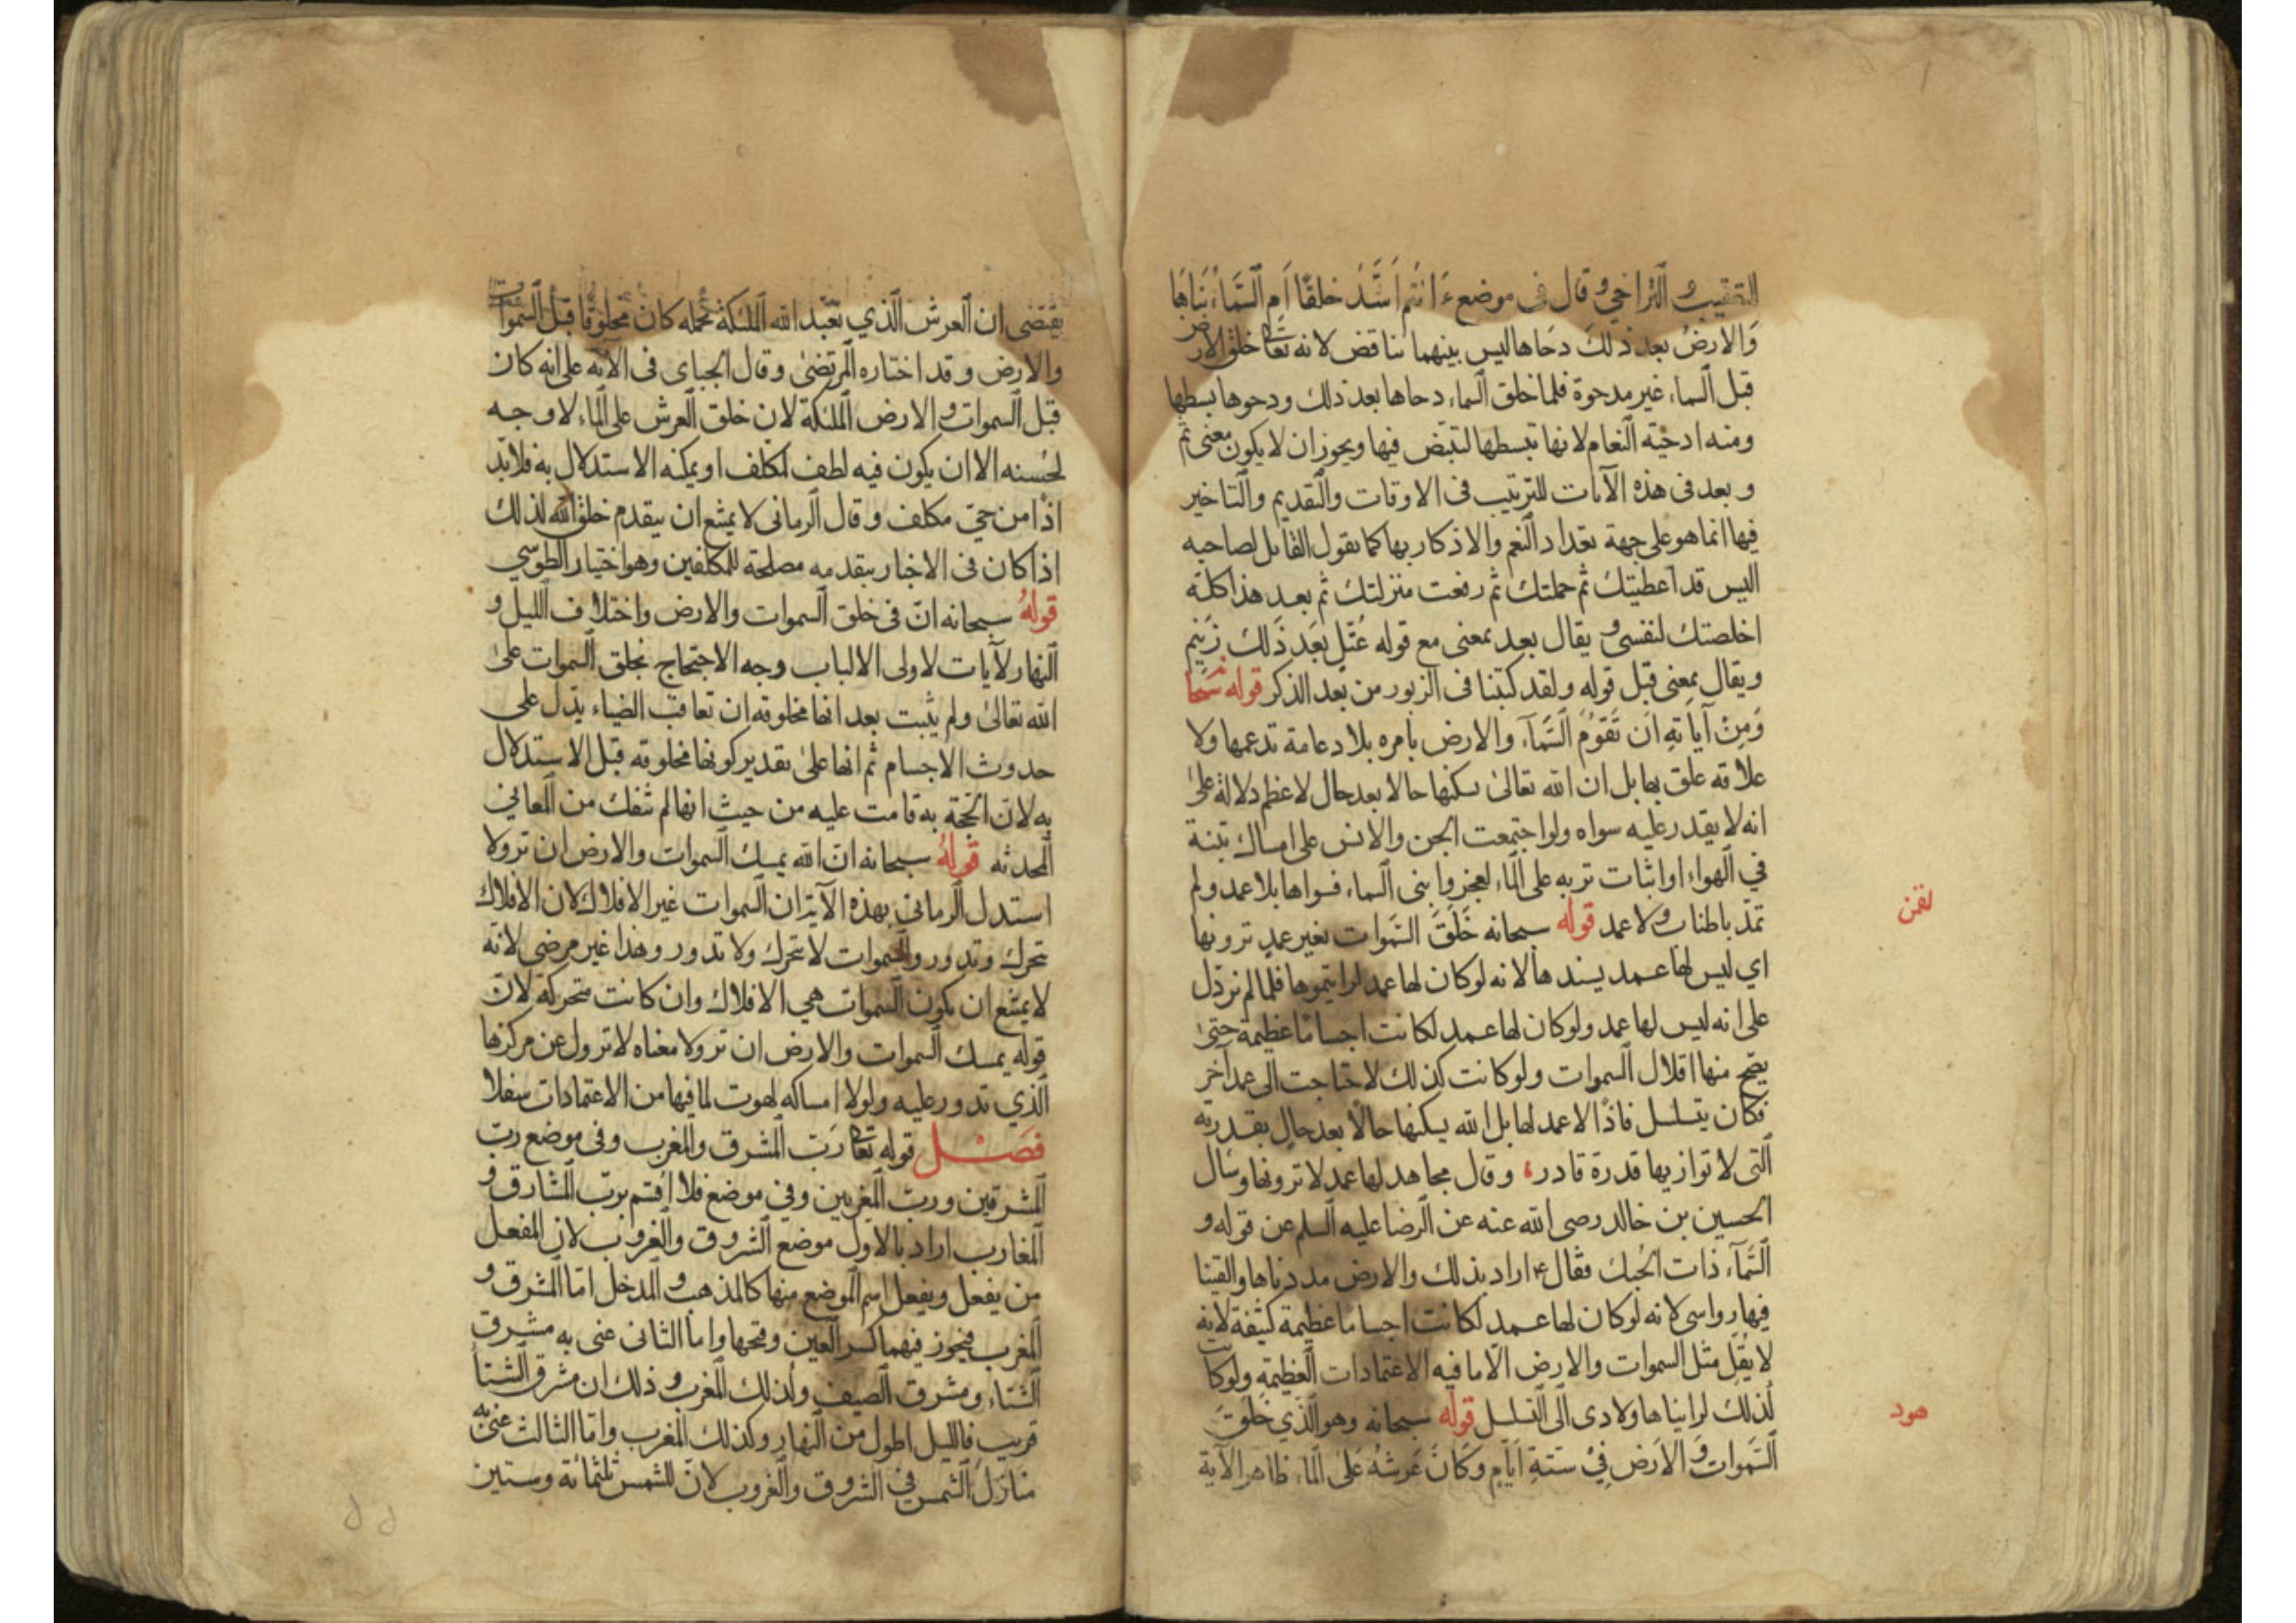 التعقيب و التراخي و قال في موضع ءَانتم اَشَدُّ خلقًا اَمِ السَّمَاءُ بَنَاهَا
وَالارضَ بعد ذلكَ دحَاها ليس بينهما تناقض لانه تعا خلق الارض
قبل السماء غير مدحوة فلما خلق السماء دحاها بعد ذلك ودحوها بسطها
ومنه ادحيّة النعام لانها تبسطها لتبيض فيها ويجوز ان لا يكون معنى ثم
و بعد فى هذه الآيات للترتيب فى الاوقات والتقديم والتاخير
فيها انما هو على جهة تعداد النعم والاذكار بها كما يقول القايل لصاحبه
اليس قد اعطيتك ثم حملتك ثم رفعت منزلتك ثم بعد هذا كلّه
اخلصتك لنفسى و يقال بعد بمعنى مع قوله عُتُلٍّ بَعدَ ذَلك زَنيمٍ
ويقال بمعنى قبل قوله ولقد كتبنا فى الزبور من بعد الذكر قوله سبحانه
وَمِنْ آيَاتهِ اَن تَقومَ السَّمَآء والارض بامره بلا دعامة تدعمها ولا
علاقه علق بها بل ان الله تعالى يسكنها حالا بعد حال لاعظم دلالة على
انه لا يقدر عليه سواه ولو اجتمعت الجن والانس على امساك تبنة
في الهواء او اثبات تربه على الماء لعجزوا بنى السماء فسواها بلا عمد ولم
تمدّ باطناب ولا عمد قوله سبحانه خَلَقَ السَّموات بغير عمدٍ ترونها
اي ليس لها عمد يسندها لانه لو كان لها عمد لرايتموها فلما لم تر دّل
على انه ليس لها عمد ولو كان لها عمد لكانت اجساما عظيمة حتى
يصّح منها اقلال السموات ولو كانت كذلك لاحتاجت الى عمد آخر
فكان يتسلسل فاذًا لا عمد لها بل الله يسكنها حالًا بعد حالٍ بقدرته
الّتى لا توازيها قدرة قادر، وقال مجاهد لها عمد لا ترونها وسال
الحسين بن خالد رضى الله عنه عن الرضا عليه السلم عن قوله و
السَّمآء ذات الحُبك فقال ع اراد بذلك والارض مددناها والقينا
فيها رواسى لانه لو كان لها عمد لكانت اجساما عظيمة كثيفة لانه
لا يُقل مثل السموات والارض الّا ما فيه الاعتمادات العظيمة ولو كانت
لذلك لرايناها ولادى الى التسلسل قوله سبحانه وهو الّذي خَلَقَ
السَّموات وَ الاَرض فِيْ ستةِ اَيّامٍ وَكَانَ عَرشهُ عَلى المَاء ظاهر الآية
لقمن
هود
يقتضى ان العرش الّذي تعبّد الله الملئكة بحمله كان مخلوقا قبل السموات
والارض وقد اختاره المرتضىٰ وقال الجباى فى الآية على انه كان
قبل السموات و الارض الملئكة لان خلق العرش على الماء لا وجه
لحُسنه الا ان يكون فيه لطف لمكلف او يمكنه الاستدلال به فلا بدّ
اذًا من حيّ مكلف وقال الرمانى لا يمتنع ان يتقدم خلق الله لذلك
اذا كان فى الاخبار بتقدمه مصلحة للمكلفين وهو اختيار الطوسي
قولهُ سبحانه انّ فى خلق السموات والارض واختلاف الليل و
النهار لآيات لاولى الالباب وجه الاحتجاج بخلق السموات على
الله تعالىٰ ولم يثبت بعد انها مخلوقه ان تعاقب الضياء يدّل على
حدوث الاجسام ثم انها علىٰ تقدير كونها مخلوقه قبل الاستدلال
به لانّ الحجّة به قامت عليه من حيث انها لم تنفك من المعاني
المحدثه قولهُ سبحانه انّ الله يمسك السموات والارض ان تزولا
استدل الرماني بهذه الآية ان السموات غير الافلاك لان الافلاك
تتحرك وتدور والسموات لا تتحرك ولا تدور وهذا غير مرضى لانّه
لا يمتنع ان يكون السموات هي الافلاك وان كانت متحركة لانّ
قوله يمسك السموات والارض ان تزولا معناه لا تزول عن مركزها
الّذي تدور عليه ولولا امساكه لهوت لما فيها من الاعتمادات سفلا
فصل قوله تعا رَبّ المشرق والمغرب وفى موضع ربّ
المشرقين وربّ المغربين وفى موضع فلا اُقسم بربّ المشارق و
المغارب اراد بالاول موضع الشروق والغروب لان المفعل
من يفعل ويفعل اسم الموضع منها كالمذهب و المدخل امّا المشرق و
المغرب فيجوز فيهما كسر العين وفتحها واما الثانى عنى به مشرق
الشتاء ومشرق الصيف وكذلك المغرب و ذلك ان مشرق الشتاء
قريب فالليل اطول من النهار وكذلك المغرب وامّا الثالث عنى به
منازل الشمس في الشروق والغروب لانّ للشمس ثلثمائة وستين